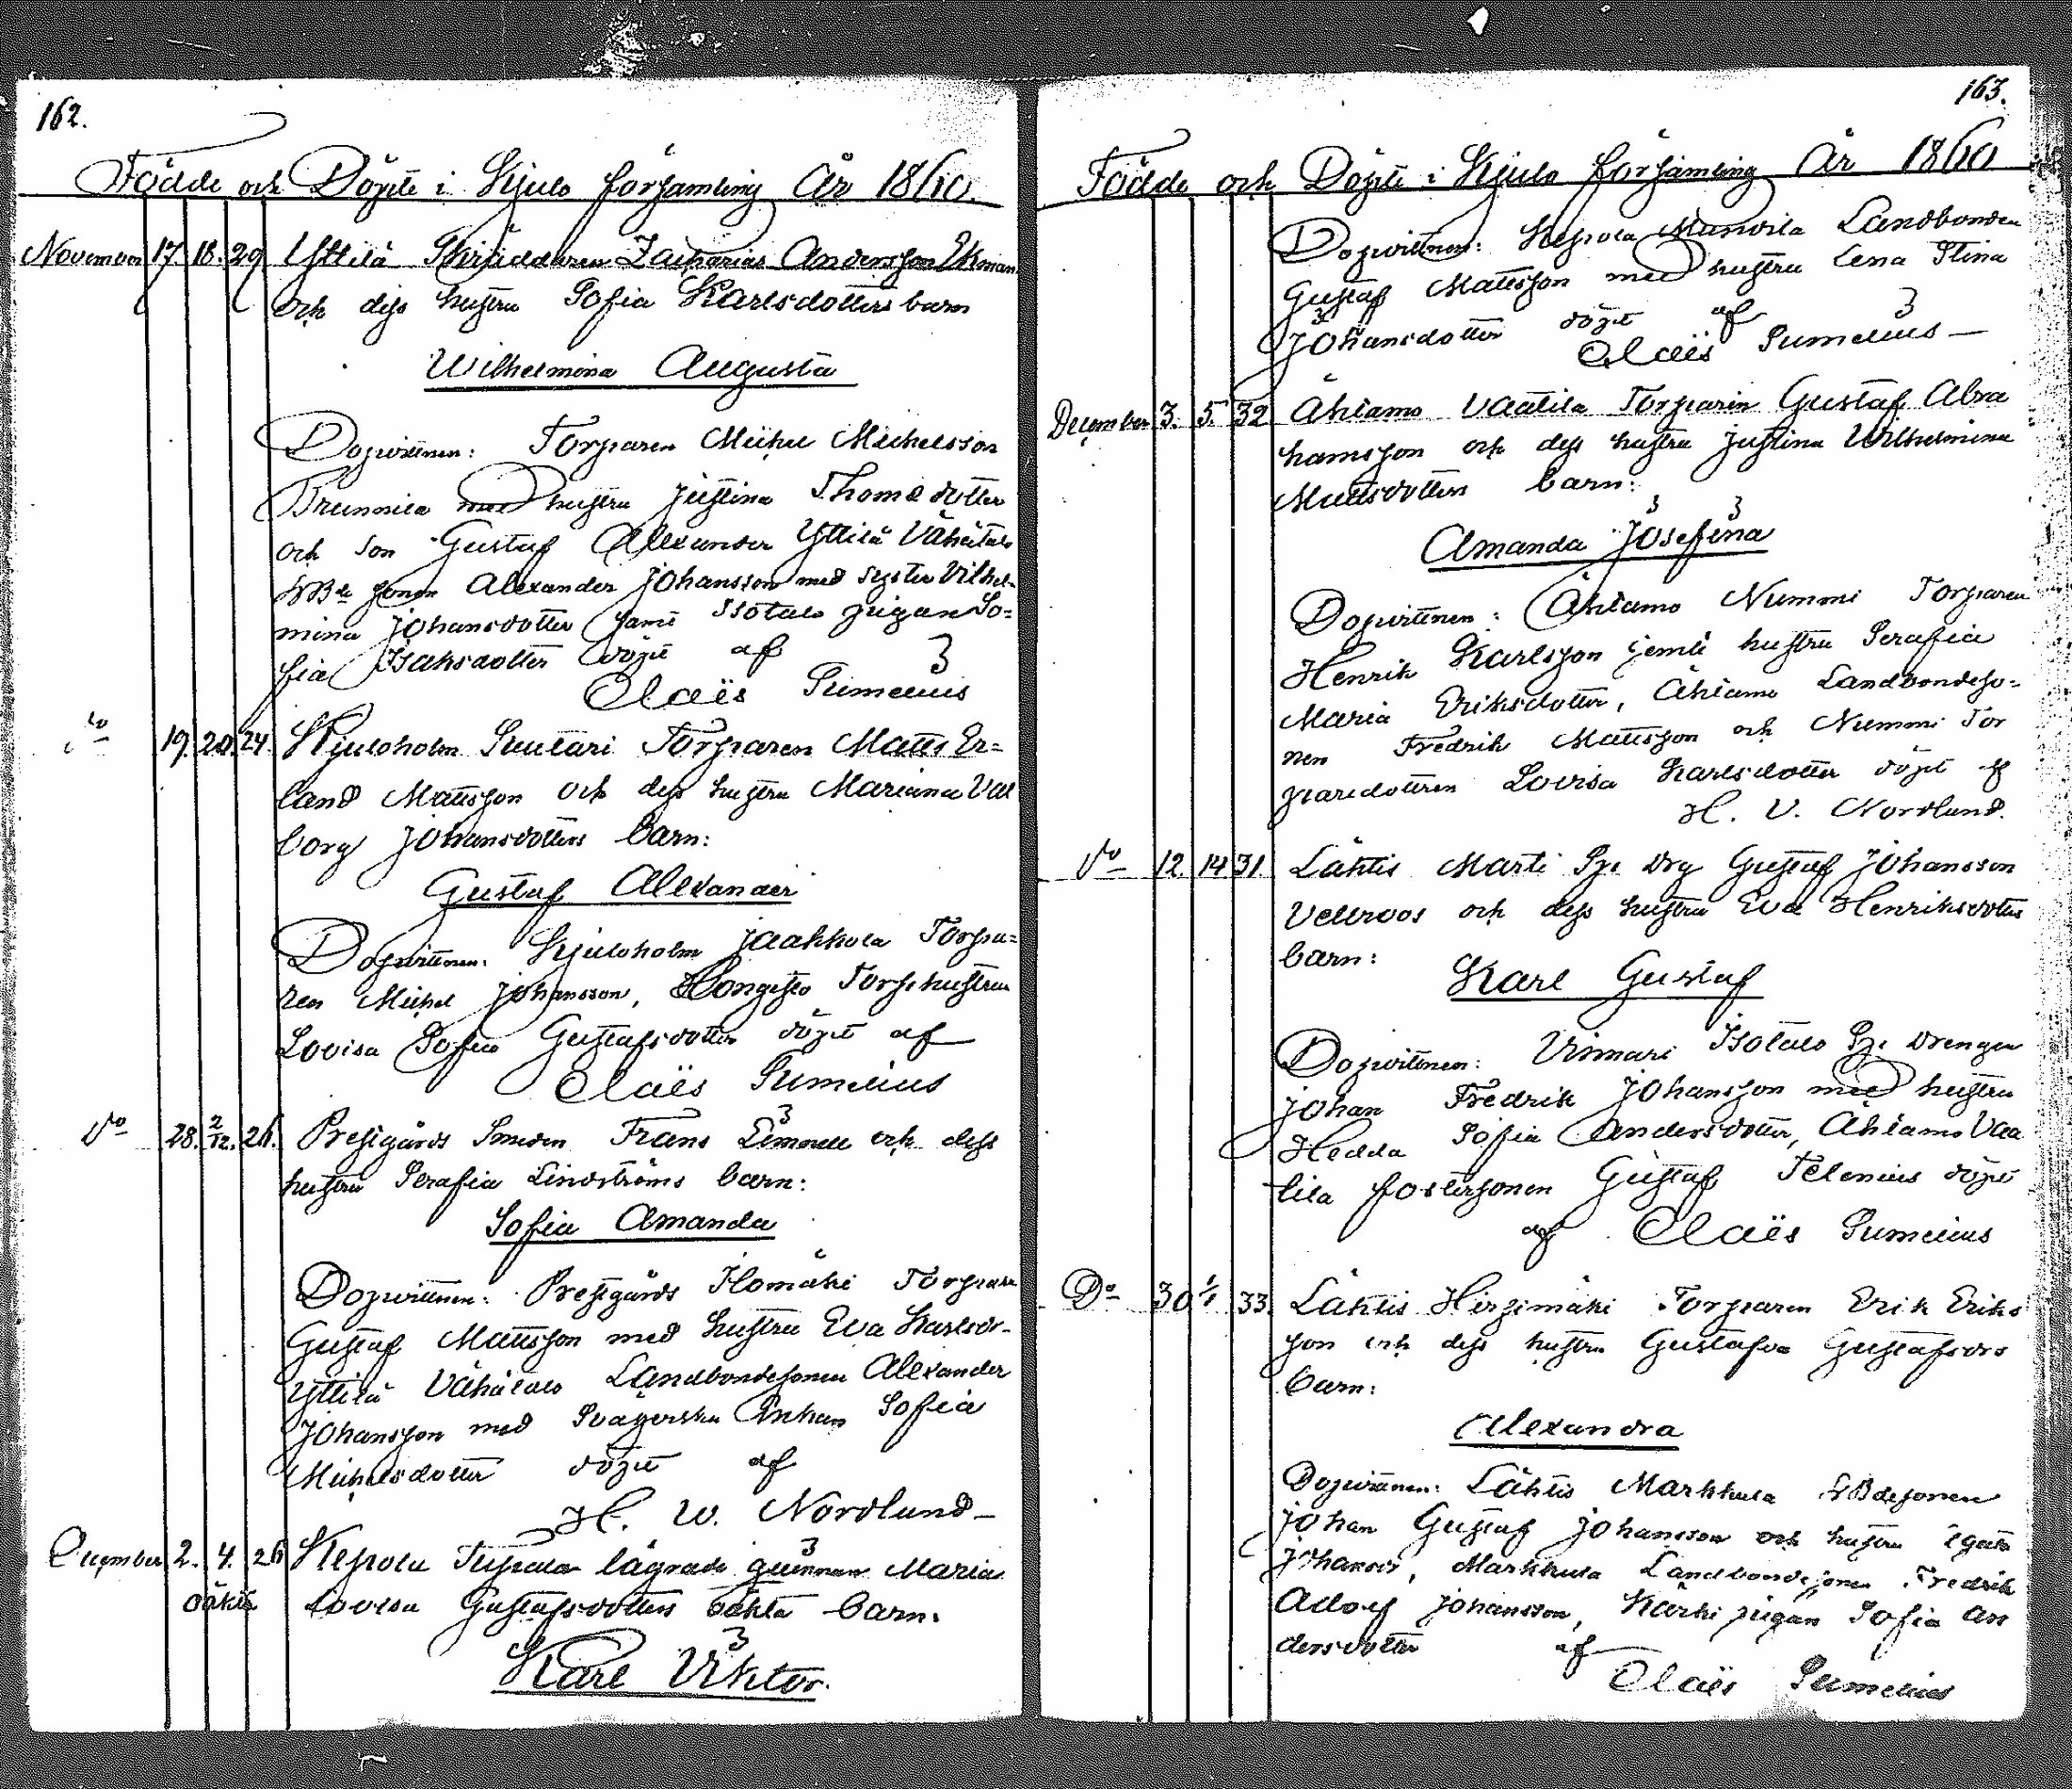 162.
Födde och Döpte i Kjulo församling År 1860.
November 17. 18. 29 Yttilä Skräddaren Zacharias Andersson Ekman
och dess hustru Sofia Karlsdotters barn
Wilhelmina Augusta
Dopvittnen: Torparen Michel Michelsson
Brunnila med hustru Justina Thomædotter
och son Gustaf Alexander Yttilä Vähätalo
LBde sonen Alexander Johansson med syster Vilhel-
mina Johansdotter samt Isotalo pigan So-
fia Isaksdotter döpt af
Claës Sumelius
do 19. 20. 24. Kjuloholm Suutari Torparen Matts Er-
land Mattsson och dess hustru Mariana Val
borg Johansdotters barn:
Gustaf Alexander
Dopvittnen: Kjuloholm Jaakkola Torpa-
ren Michel Johansson, Hongisto Torp. hustrun
Lovisa Sofia Gustafsdotter döpt af
Claës Sumelius
do 28. 2/12. 26. Prestgårds Smeden Frans Limnell och dess
hustru Serafia Lindströms barn:
Sofia Amanda
Dopvittnen: Prestgårds Ilomäki Torparen
Gustaf Mattsson med hustru Eva Karlsdr.
Yttilä Vähätalo Landbondesonen Alexander
Johansson med Svägerska Enkan Sofia
Michelsdotter döpt af
H. W. Nordlund
December 2. 4. 26 Kepola lägrade qvinnan Maria
oäkta Lovisa Gustafsdotters oäkta barn.
Karl Viktor.
163.
Födde och Döpte i Kjulo församling År 1860
Dopvittnen: Kepola Landbonden
Gustaf Mattsson med hustru Lena Stina
Johansdotter döpt af
Claës Sumelius
December 3. 5. 32 Ahlamo Vaatila Torparen Gustaf Abra
hamsson och dess hustru Justina Wilhelmina
Mattsdotters barn:
Amanda Josefina
Dopvittnen: Ahlamo Nummi Torparen
Henrik Karlsson jemte hustru Serafia
Maria Eriksdotter, Ahlamo Landbondeso-
nen Fredrik Mattsson och Nummi Tor
paredottren Lovisa Karlsdotter döpt af
H. V. Nordlund.
do 12. 14 31. Lähtis Marti Sp. Drg Gustaf Johansson
Vellroos och dess hustru Eva Henriksdotters
barn:
Karl Gustaf
Dopvittnen: Vinnari Isotalo Sp. Drengen
Johan Fredrik Johansson med hustru
Hedda Sofia Andersdotter, Ahlamo Vaa
tila fostersonen Gustaf Telenius döpt
af Claës Sumelius
Do 30 1/1 33. Lähtis Hirsimäki Torparen Erik Eriks
son och dess hustru Gustafva Gustafsdrs
barn:
Alexandra
Dopvittnen: Lähtis Markkula LBdesonen
Johan Gustaf Johansson och hustru Agata
Johansdr, Markkula Landbondesonen Fredrik
Adolf Johansson, Kärki pigan Sofia An
dersdotter af
Claës Sumelius